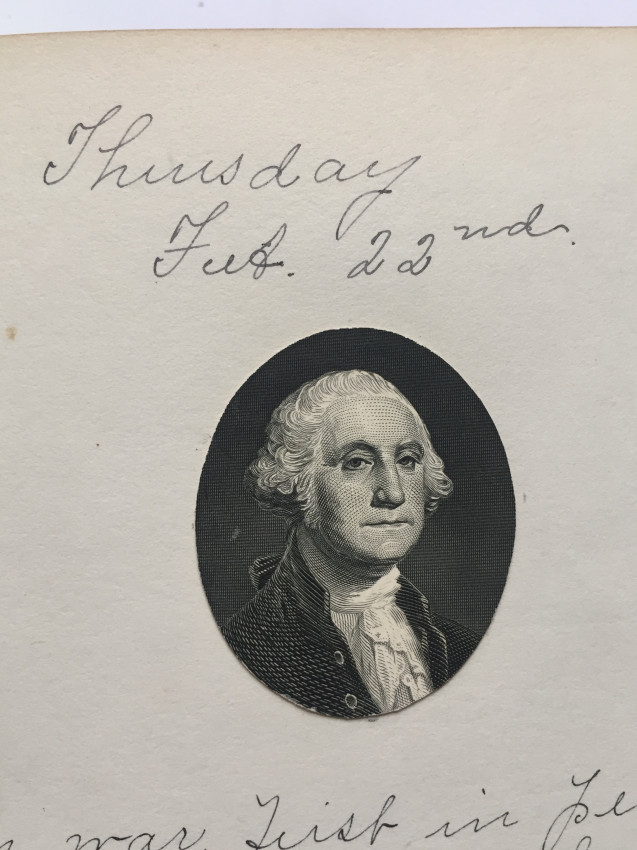 Thursday
Feb. 22nd.
n war, First in Pe